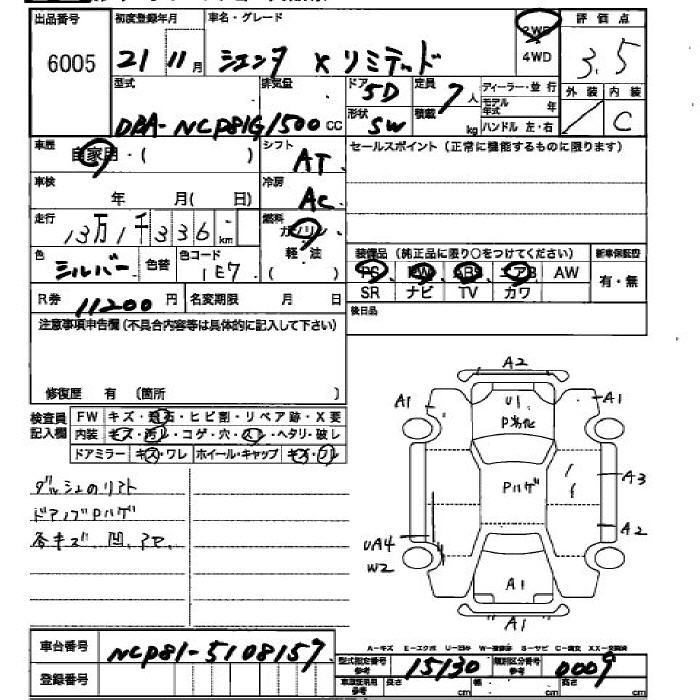 出品番号 初度登録年月 車名・グレード 2WD 評価点
6005 21 11月 シエンタ X リミテッド 4WD 3.5
型式 排気量 ドア 5D 定員 7人 ディーラー・並行 外装 内装
モデル年式 年
DBA-NCP81G 1500cc 形状 SW 積載 kg ハンドル 左・右 C
車歴 自家用・( ) シフト AT セールスポイント(正常に機能するものに限ります)
車検 年 月( 日) 冷房 AC
走行 13万1千336km 燃料 ガソリン
軽・油
( )
装備品(純正品に限り○をつけてください) 新車保証書
色 シルバー 色替 色コード 1E7 PS PW ABS エアB AW 有・無
R券 11200円 名変期限 月 日 SR ナビ TV カワ
注意事項申告欄(不具合内容等は具体的に記入して下さい) 後日品
修復歴 有 (箇所 )
検査員記入欄 FW キズ・飛石・ヒビ割・リペア跡・X要
内装 キズ・汚レ・コゲ・穴・スレ・ヘタリ・破レ
ドアミラー キズ・ワレ ホイール・キャップ キズ・ワレ
ドアノブPハゲ
各キズ、凹、
A2
A1 U1 A1
P劣化
Pハゲ
A3
A2
UA4
W2
A1
A1
車台番号 NCP81-5108157
A-キズ E-エクボ U-凹み W-補修跡 S-サビ C-腐食 XX-交換済
型式指定番号 参考 15130 類別区分番号 参考 0009
登録番号 車庫証明用 参考 長さ cm 幅 cm 高さ cm